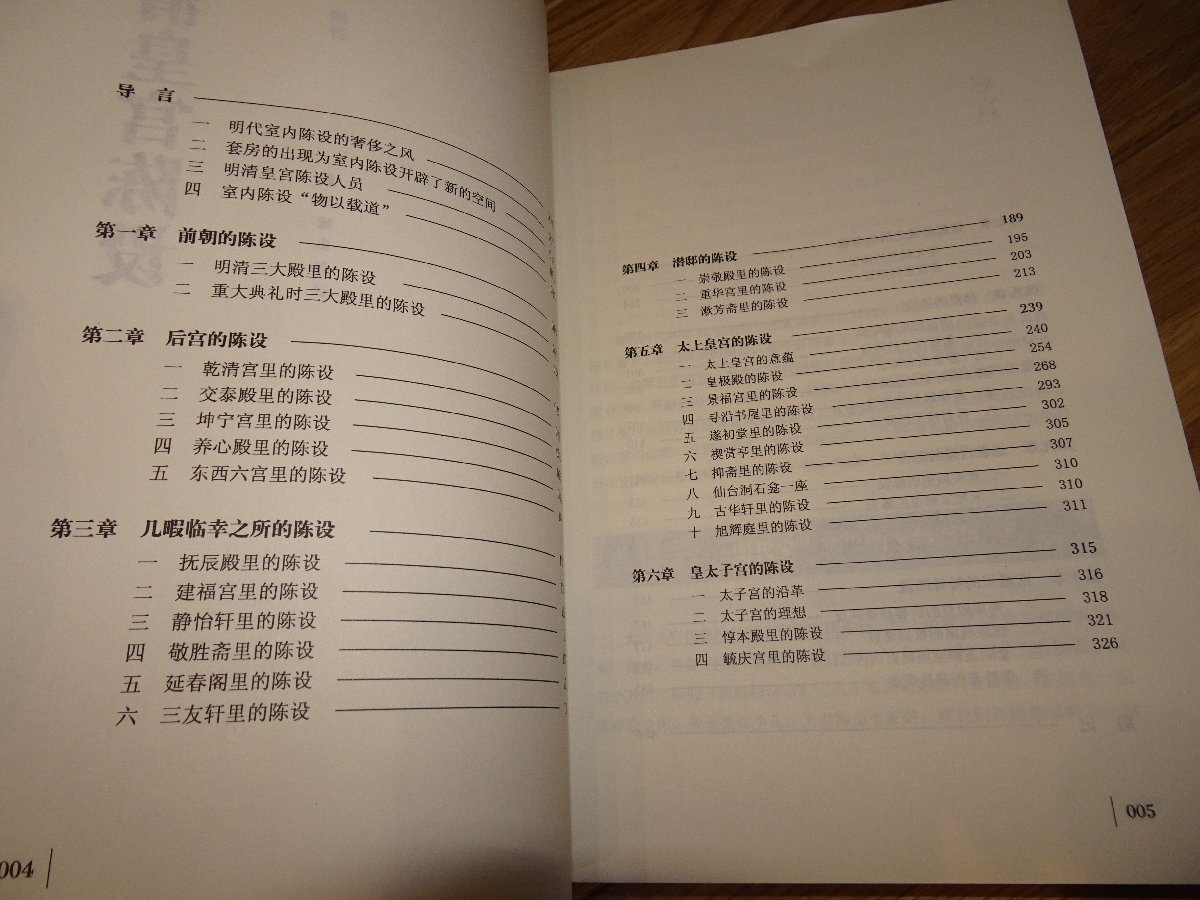 导 言
一 明代室内陈设的奢侈之风
二 套房的出现为室内陈设开辟了新的空间
三 明清皇宫陈设人员
四 室内陈设“物以载道”
第一章 前朝的陈设
一 明清三大殿里的陈设
二 重大典礼时三大殿里的陈设
第二章 后宫的陈设
一 乾清宫里的陈设
二 交泰殿里的陈设
三 坤宁宫里的陈设
四 养心殿里的陈设
五 东西六宫里的陈设
第三章 几暇临幸之所的陈设
一 抚辰殿里的陈设
二 建福宫里的陈设
三 静怡轩里的陈设
四 敬胜斋里的陈设
五 延春阁里的陈设
六 三友轩里的陈设
004
第四章 潜邸的陈设 189
一 崇敬殿里的陈设 195
二 重华宫里的陈设 203
三 漱芳斋里的陈设 213
第五章 太上皇宫的陈设 239
一 太上皇宫的意蕴 240
二 皇极殿的陈设 254
三 景福宫里的陈设 268
四 寻沿书屋里的陈设 293
五 遂初堂里的陈设 302
六 禊赏亭里的陈设 305
七 抑斋里的陈设 307
八 仙台洞石龛一座 310
九 古华轩里的陈设 310
十 旭辉庭里的陈设 311
第六章 皇太子宫的陈设 315
一 太子宫的沿革 316
二 太子宫的理想 318
三 惇本殿里的陈设 321
四 毓庆宫里的陈设 326
005